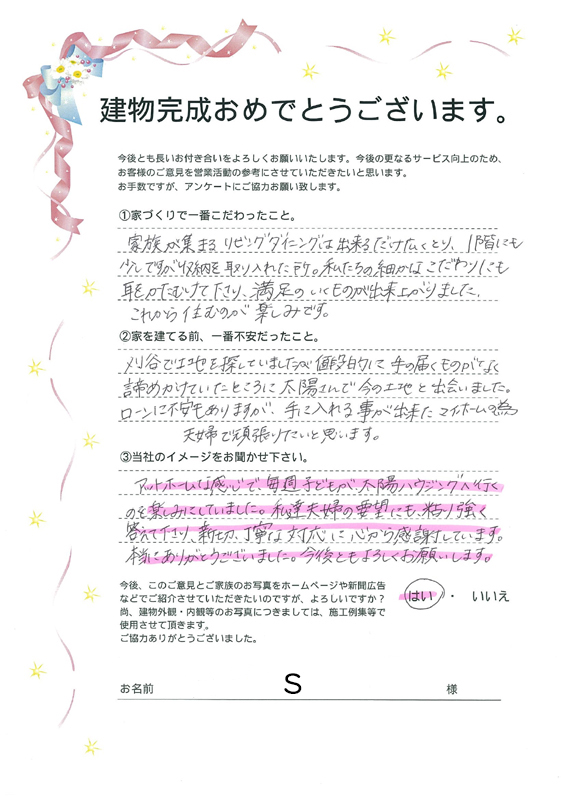 建物完成おめでとうございます。
今後とも長いお付き合いをよろしくお願いいたします。今後の更なるサービス向上のため、
お客様のご意見を営業活動の参考にさせていただきたいと思います。
お手数ですが、アンケートにご協力お願い致します。
①家づくりで一番こだわったこと。
家族が集まるリビングダイニングは出来るだけ広くとり、1階にも
少しですが収納を取り入れた所。私たちの細かなこだわりにも
耳をかたむけて下さり、満足のいくものが出来上がりました。
これから住むのが楽しみです。
②家を建てる前、一番不安だったこと。
刈谷で土地を探していましたが値段的に手の届くものがなく
諦めかけていたところに太陽さんで今の土地と出会いました。
ローンに不安もありますが、手に入れる事が出来たマイホームの為
夫婦で頑張りたいと思います。
③当社のイメージをお聞かせ下さい。
アットホームな感じで、毎週子どもが太陽ハウジングへ行く
のを楽しみにしていました。私達夫婦の要望にも、粘り強く
答えて下さり、親切、丁寧な対応に心から感謝しています。
本当にありがとうございました。今後ともよろしくお願いします。
今後、このご意見とご家族のお写真をホームページや新聞広告
などでご紹介させていただきたいのですが、よろしいですか？
はい ・ いいえ
尚、建物外観・内観等のお写真につきましては、施工例集等で
使用させて頂きます。
ご協力ありがとうございました。
お名前 S 様